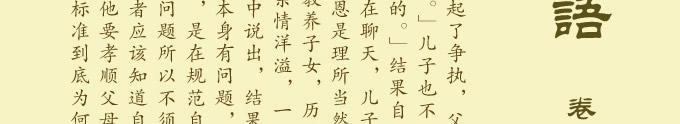 語
卷
起了争执，父
。」儿子也不
的。」结果自
在聊天，儿子
恩是理所当然
教养子女，历
亲情洋溢，一
中说出，结果
本身有问题，
，是在规范自
问题所以不须
者应该知道自
他要孝顺父母
标准到底为何